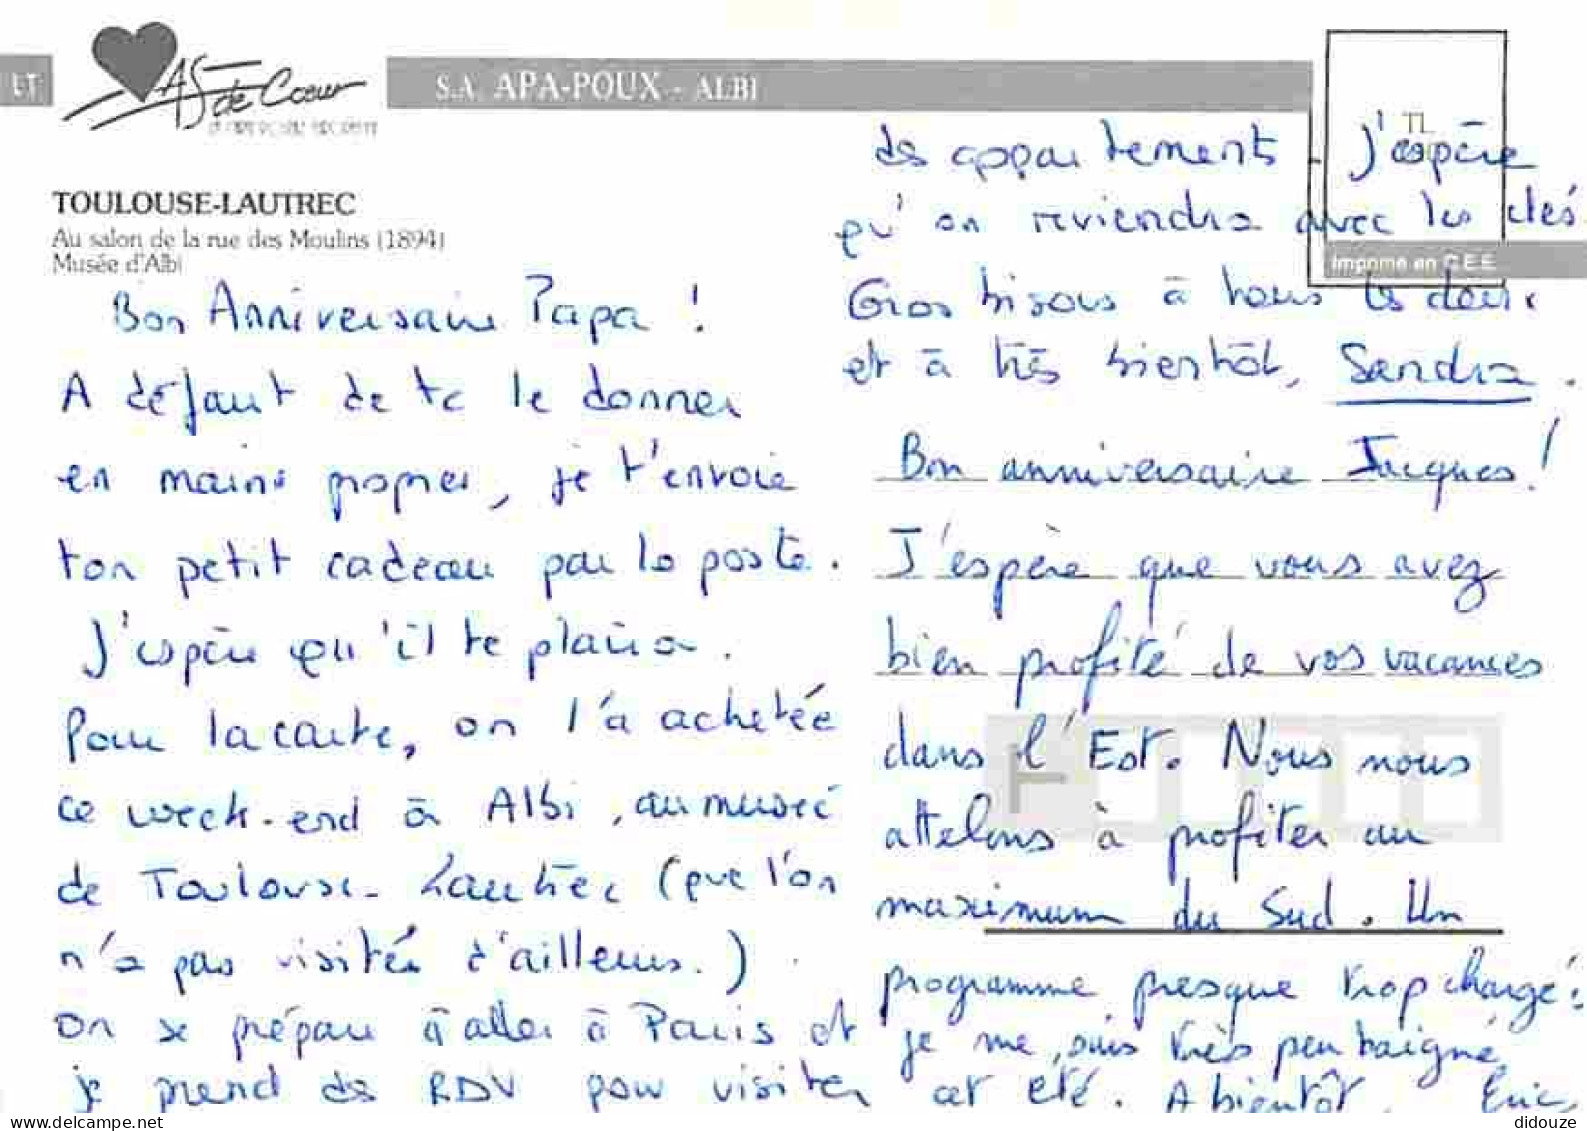 LT
AS de Coeur
S.A. APA-POUX - ALBI
TOULOUSE-LAUTREC
Au salon de la rue des Moulins (1894)
Musée d'Albi
Imprimé en C.E.E.
Bon Anniversaire Papa !
A défaut de te le donner
en mains propres, je t'envoie
ton petit cadeau par la poste.
J'espère qu'il te plaira.
Pour la carte, on l'a achetée
ce week-end à Albi, au musée
de Toulouse-Lautrec (que l'on
n'a pas visités d'ailleurs.)
On se prépare à aller à Paris et
je prend des RDV pour visiter
des appartements. J'espère
qu'on reviendra avec les clés.
Gros bisous à tous les deux
et à très bientôt, Sandra.
Bon anniversaire Jacques!
J'espère que vous avez
bien profité de vos vacances
dans l'Est. Nous nous
attelons à profiter au
maximum du Sud. Un
programme presque trop chargé:
je me suis très peu baigné
cet été. A bientôt. Eric
delcampe.net
didouze